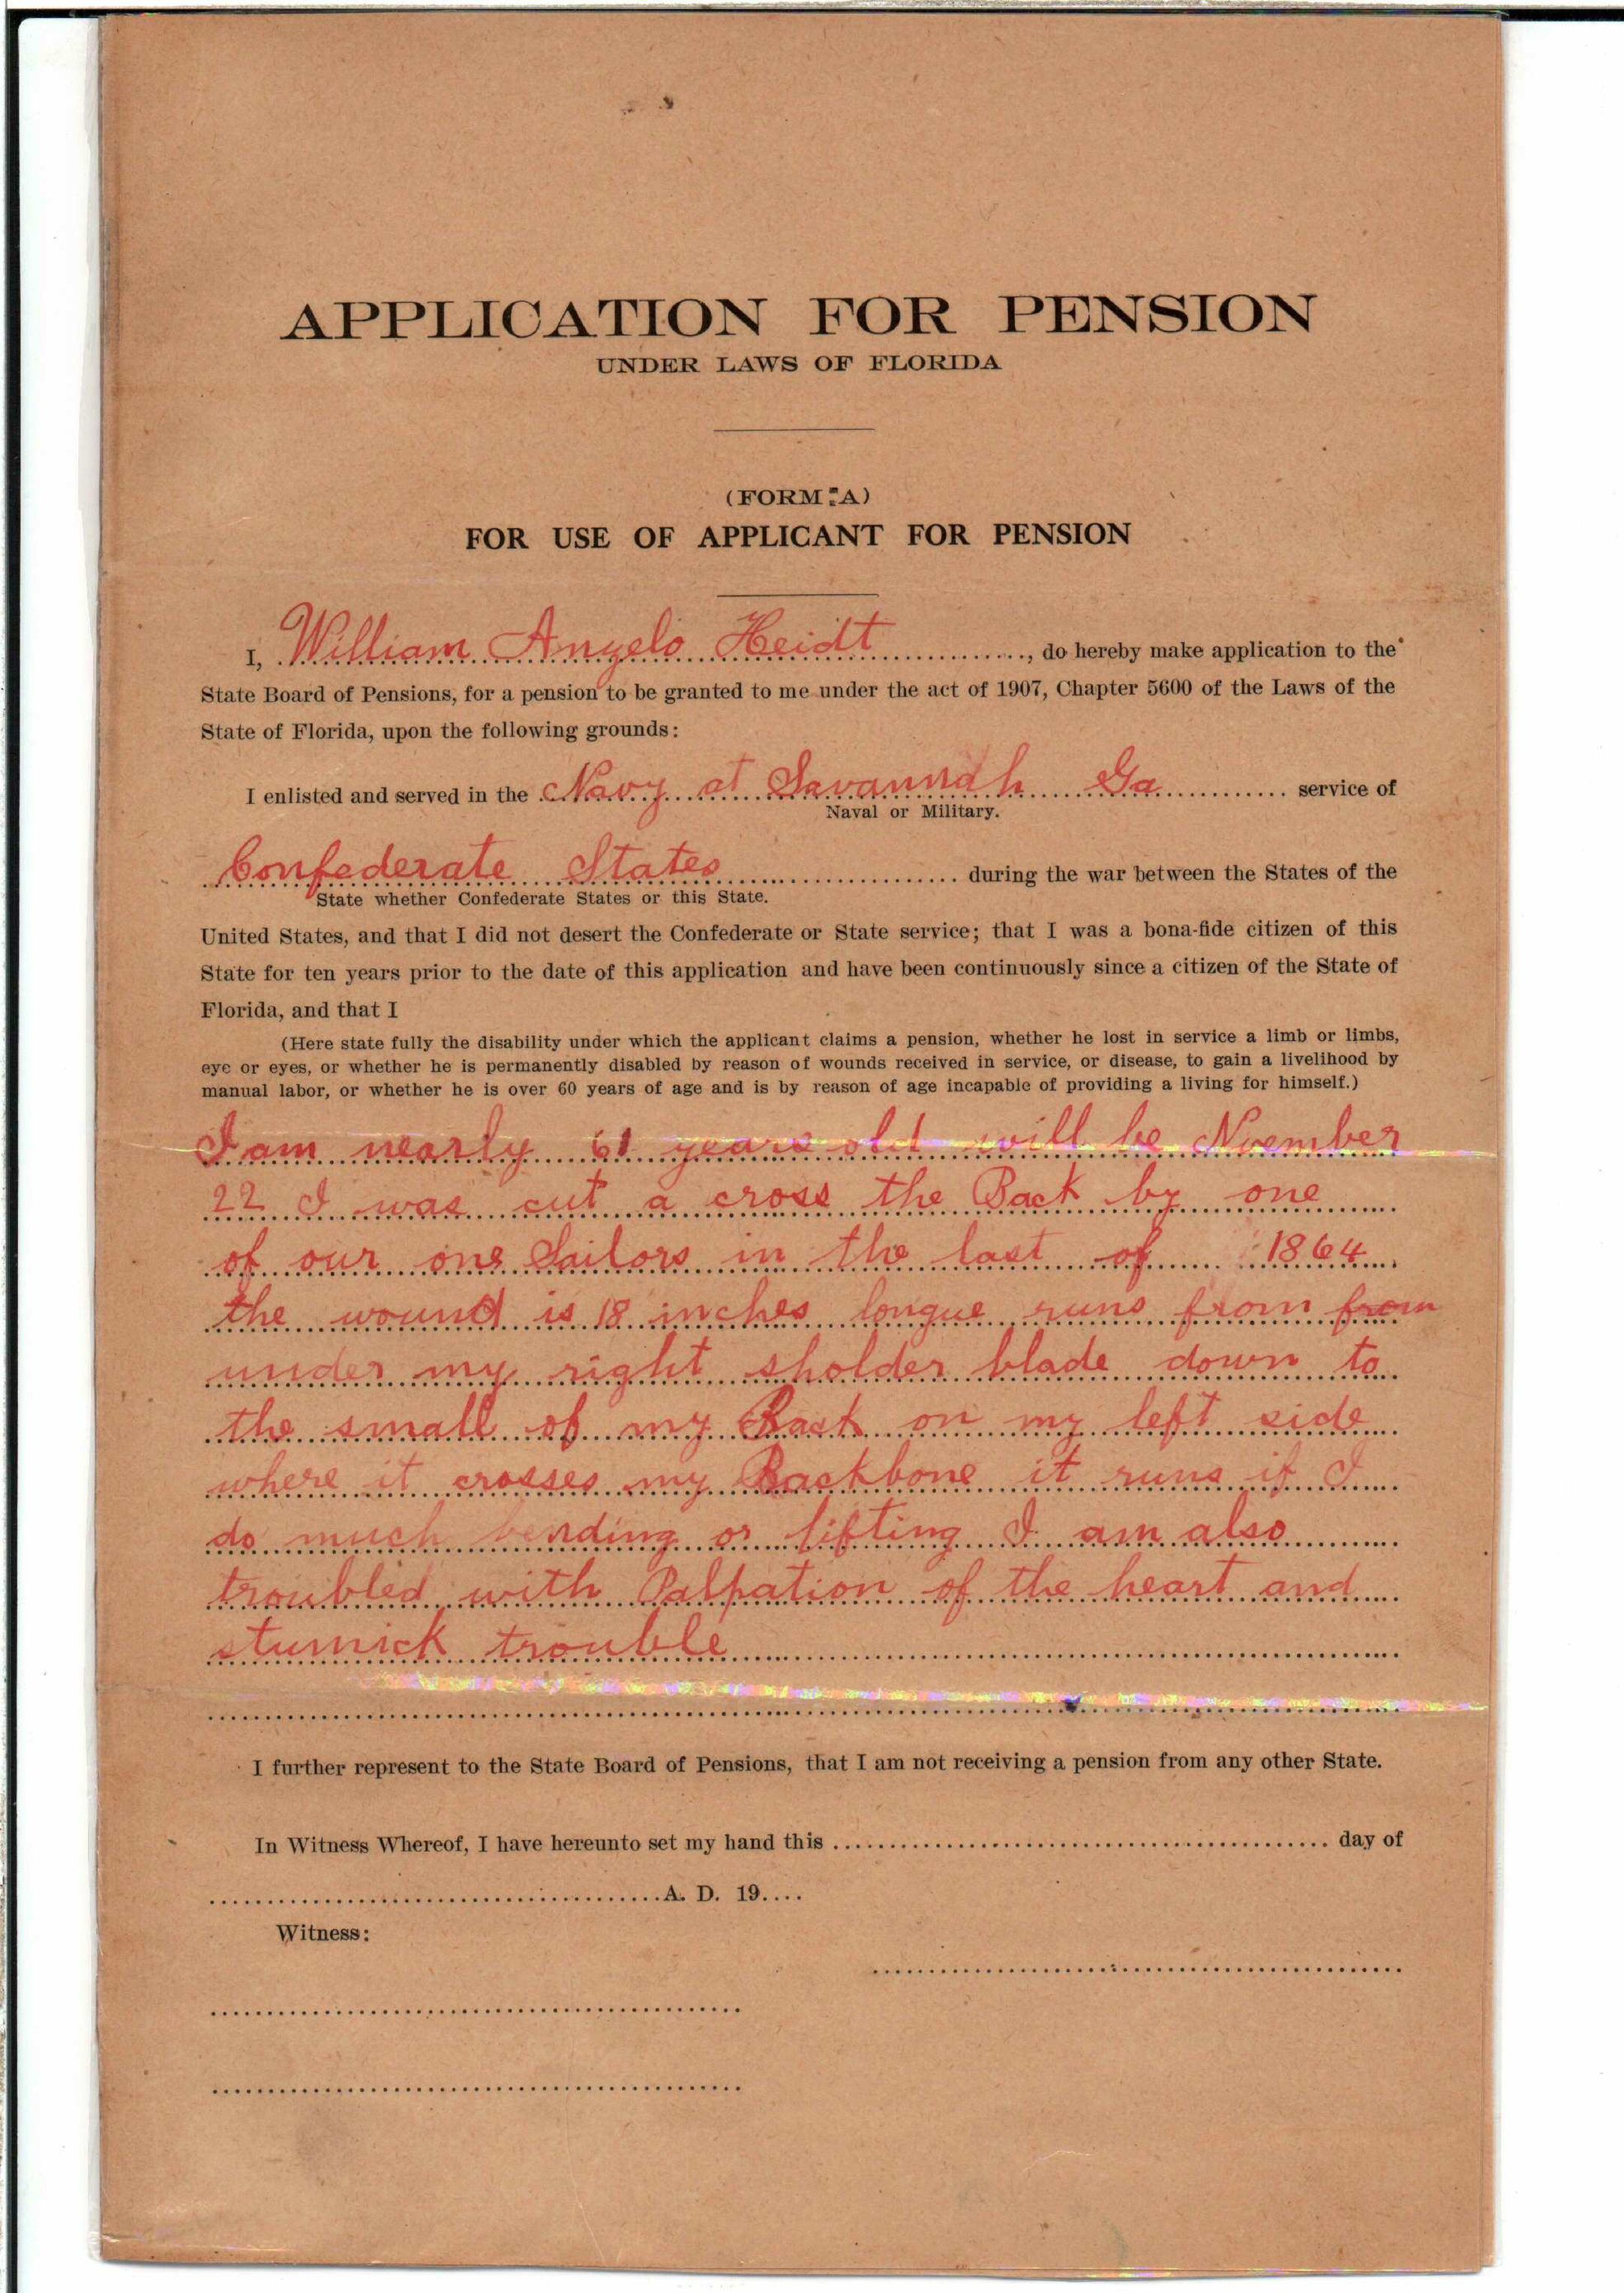 APPLICATION FOR PENSION
UNDER LAWS OF FLORIDA
(FORM A)
FOR USE OF APPLICANT FOR PENSION
I, William Angelo Heidt, do hereby make application to the
State Board of Pensions, for a pension to be granted to me under the act of 1907, Chapter 5600 of the Laws of the
State of Florida, upon the following grounds:
I enlisted and served in the Navy at Savannah Ga service of
Naval or Military.
Confederate States during the war between the States of the
State whether Confederate States or this State.
United States, and that I did not desert the Confederate or State service; that I was a bona-fide citizen of this
State for ten years prior to the date of this application and have been continuously since a citizen of the State of
Florida, and that I
(Here state fully the disability under which the applicant claims a pension, whether he lost in service a limb or limbs,
eye or eyes, or whether he is permanently disabled by reason of wounds received in service, or disease, to gain a livelihood by
manual labor, or whether he is over 60 years of age and is by reason of age incapable of providing a living for himself.)
I am nearly 61 years old will be Nvember
22 I was cut a cross the Back by one
of our one Sailors in the last of 1864
the wound is 18 inches longue runs from from
under my right sholder blade down to
the small of my Back on my left side
where it crosses my Backbone it runs if I
do much bending or lifting I am also
troubled with Palpation of the heart and
stumick trouble
I further represent to the State Board of Pensions, that I am not receiving a pension from any other State.
In Witness Whereof, I have hereunto set my hand this .......... day of
.......... A. D. 19....
Witness: